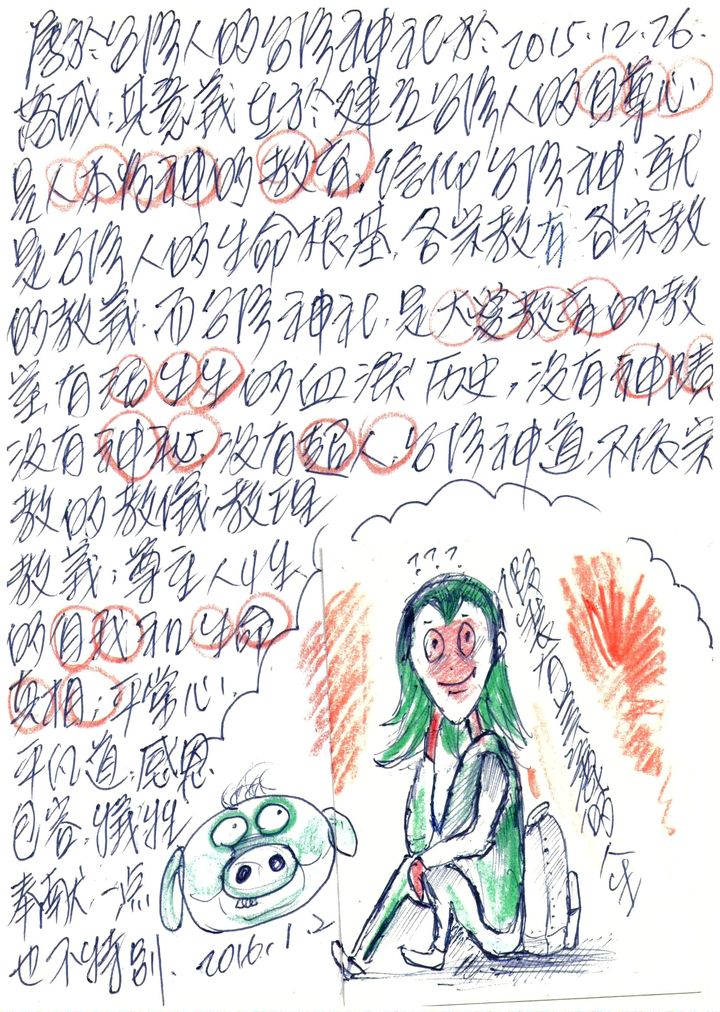 屬於台灣人的台灣神社於 2015.12.26.
落成,其意義在於建立台灣人的自尊心
是人本將神的教育,信仰台灣神,就
是台灣人的生命根基,各宗教有各宗教
的教義,而台灣神社,是大愛教育的教
室,有活生生的血淚歷史,沒有神蹟
沒有神祕,沒有超人,台灣神道,不依宗
教的教儀、教理
教義;尊主人性
的自我和生命
真相;平常心,
平凡道,感恩
包容,犧牲
奉獻,一點
也不特別. 2016.1.2
???
假裝有意識的